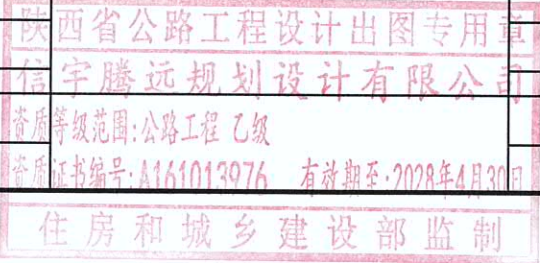 陕西省公路工程设计出图专用章
信宇腾远规划设计有限公司
资质等级范围:公路工程 乙级
资质证书编号:A161013976 有效期至:2028年4月30日
住房和城乡建设部监制